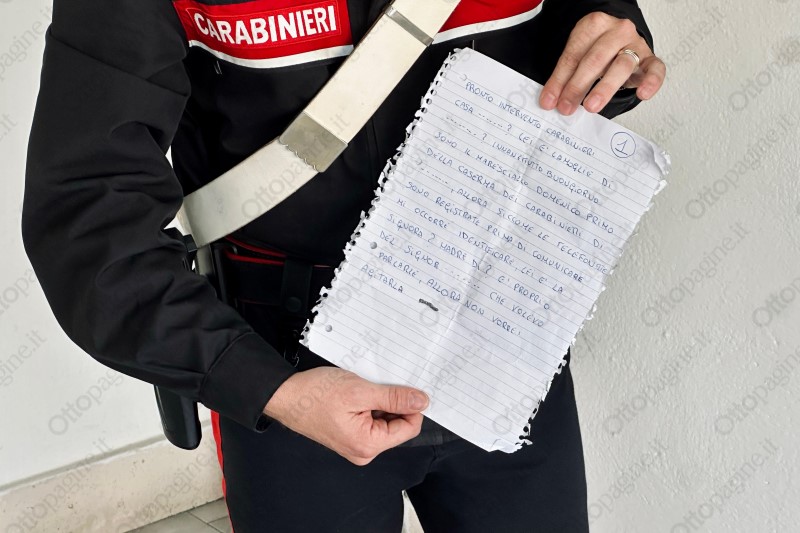 CARABINIERI
1
PRONTO INTERVENTO CARABINIERI
CASA ........? LEI È LA MOGLIE DI
........? INNANZITUTTO BUONGIORNO
SONO IL MARESCIALLO DOMENICO PRIMO
DELLA CASERMA DEI CARABINIERI DI
........, ALLORA SICCOME LE TELEFONATE
SONO REGISTRATE PRIMA DI COMUNICARE
MI OCCORRE IDENTIFICARE LEI È LA
SIGNORA ? MADRE DI ? È PROPRIO
DEL SIGNOR ........ CHE VOLEVO
PARLARLE, ALLORA NON VORREI
AGITARLA
Ottopagine.it